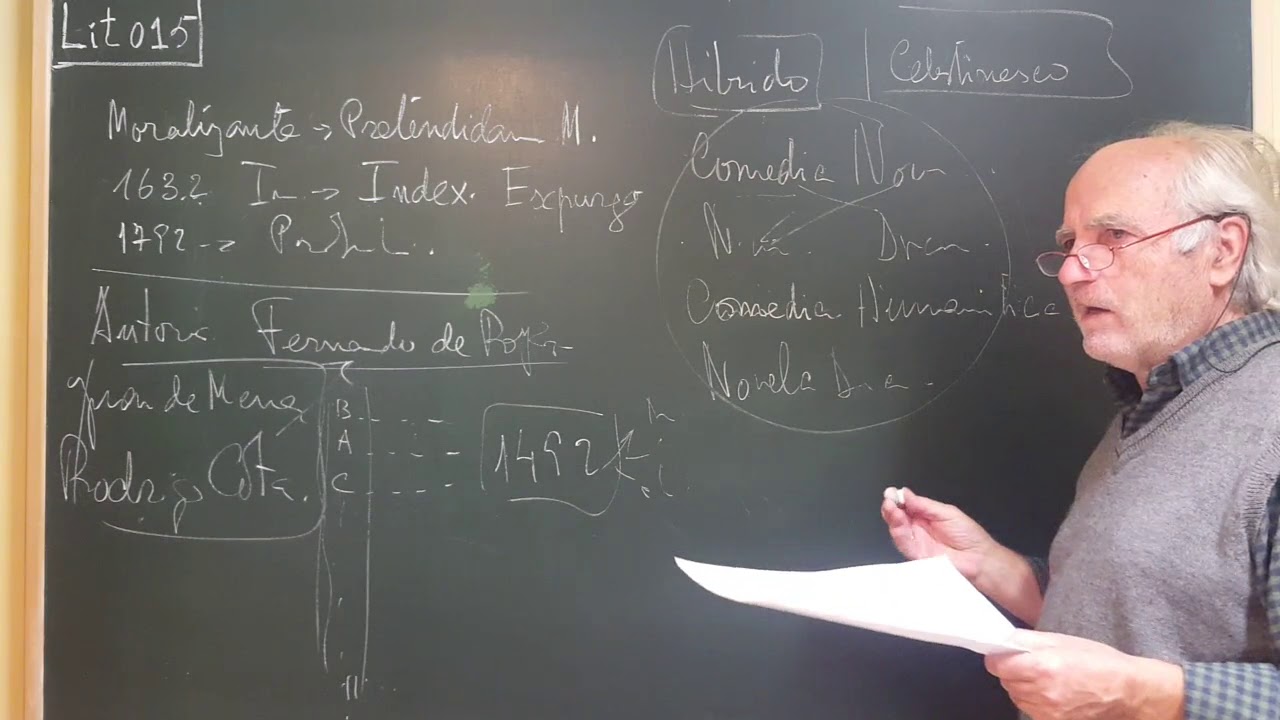 Lit 015
Moralizante → Pretendidam M.
1632 In → Index. Expurgo
1792 →
Autoria Fernando de Rojas
Juan de Mena
Rodrigo Cota.
B
A
C
1492
Híbrido | Celestinesco
Comedia Nov
N
Dram
Comedia Humanística
Novela Dra